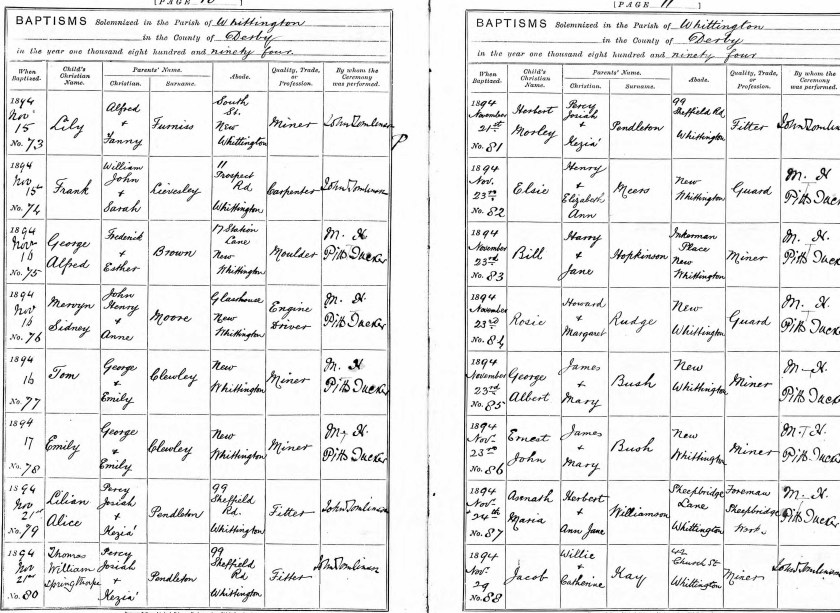 [PAGE 10
BAPTISMS Solemnized in the Parish of Whittington
in the County of Derby
in the year one thousand eight hundred and ninety four
When Baptized. Child's Christian Name. Parents' Name. Christian. Surname. Abode. Quality, Trade, or Profession. By whom the Ceremony was performed.
1894 Nov 15 No. 73 Lily Alfred + Fanny Furniss South St. New Whittington Miner John Tomlinson
1894 Nov 15 No. 74 Frank William John + Sarah Lievesley 11 Prospect Rd Whittington Carpenter John Tomlinson
1894 Nov 16 No. 75 George Alfred Frederick + Esther Brown 17 Station Lane New Whittington Moulder M. H. Pitts Tucker
1894 Nov 16 No. 76 Mervyn Sidney John Henry + Anne Moore Glasshouse New Whittington Engine Driver M. H. Pitts Tucker
1894 16 No. 77 Tom George + Emily Clewley New Whittington Miner M. H. Pitts Tucker
1894 17 No. 78 Emily George + Emily Clewley New Whittington Miner M. H. Pitts Tucker
1894 Nov 21st No. 79 Lilian Alice Percy Josiah + Kezia Pendleton 99 Sheffield Rd. Whittington Fitter John Tomlinson
1894 Nov 21st No. 80 Thomas William Springthorpe Percy Josiah + Kezia Pendleton 99 Sheffield Rd Whittington Fitter John Tomlinson
[PAGE 11
BAPTISMS Solemnized in the Parish of Whittington
in the County of Derby
in the year one thousand eight hundred and ninety four
When Baptized. Child's Christian Name. Parents' Name. Christian. Surname. Abode. Quality, Trade, or Profession. By whom the Ceremony was performed.
1894 November 21st No. 81 Herbert Morley Percy Josiah + Kezia Pendleton 99 Sheffield Rd Whittington Fitter John Tomlinson
1894 Nov. 23rd No. 82 Elsie Henry + Elizabeth Ann Meers New Whittington Guard M. H. Pitts Tucker
1894 November 23rd No. 83 Bill Harry + Jane Hopkinson Inkerman Place New Whittington Miner M. H. Pitts Tucker
1894 November 23rd No. 84 Rosie Howard + Margaret Rudge New Whittington Guard M. H. Pitts Tucker
1894 November 23rd No. 85 George Albert James + Mary Bush New Whittington Miner M. H. Pitts Tucker
1894 Nov. 23rd No. 86 Ernest John James + Mary Bush New Whittington Miner M. H. Pitts Tucker
1894 Nov. 24th No. 87 Asenath Maria Herbert + Ann Jane Williamson Sheepbridge Lane Whittington Foreman Sheepbridge Works M. H. Pitts Tucker
1894 Nov. 29 No. 88 Jacob Willie + Catherine Kay 42 Church St Whittington Miner John Tomlinson